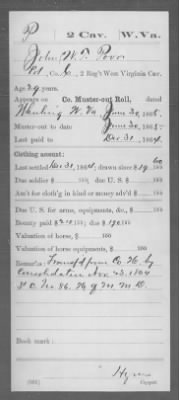 P | 2 Cav. | W. Va.
John W. T. Poor
Pvt, Co. C, 2 Reg't West Virginia Cav.
Age 29 years.
Appears on Co. Muster-out Roll, dated
Wheeling W. Va. June 30, 1865.
Muster-out to date June 30, 1865.
Last paid to Dec 31, 1864.
Clothing account:
Last settled Dec 31, 1864; drawn since $19 60/100
Due soldier $ /100; due U. S. $ /100
Am't for cloth'g in kind or money adv'd $ /100
Due U. S. for arms, equipments, &c., $ /100
Bounty paid $ /100; due $ /100
Valuation of horse, $ /100
Valuation of horse equipments, $ /100
Remarks: Transf'd from Co. by
Consolidation Nov 23, 1864
S.O. No 86.
Book mark:
Copyist.